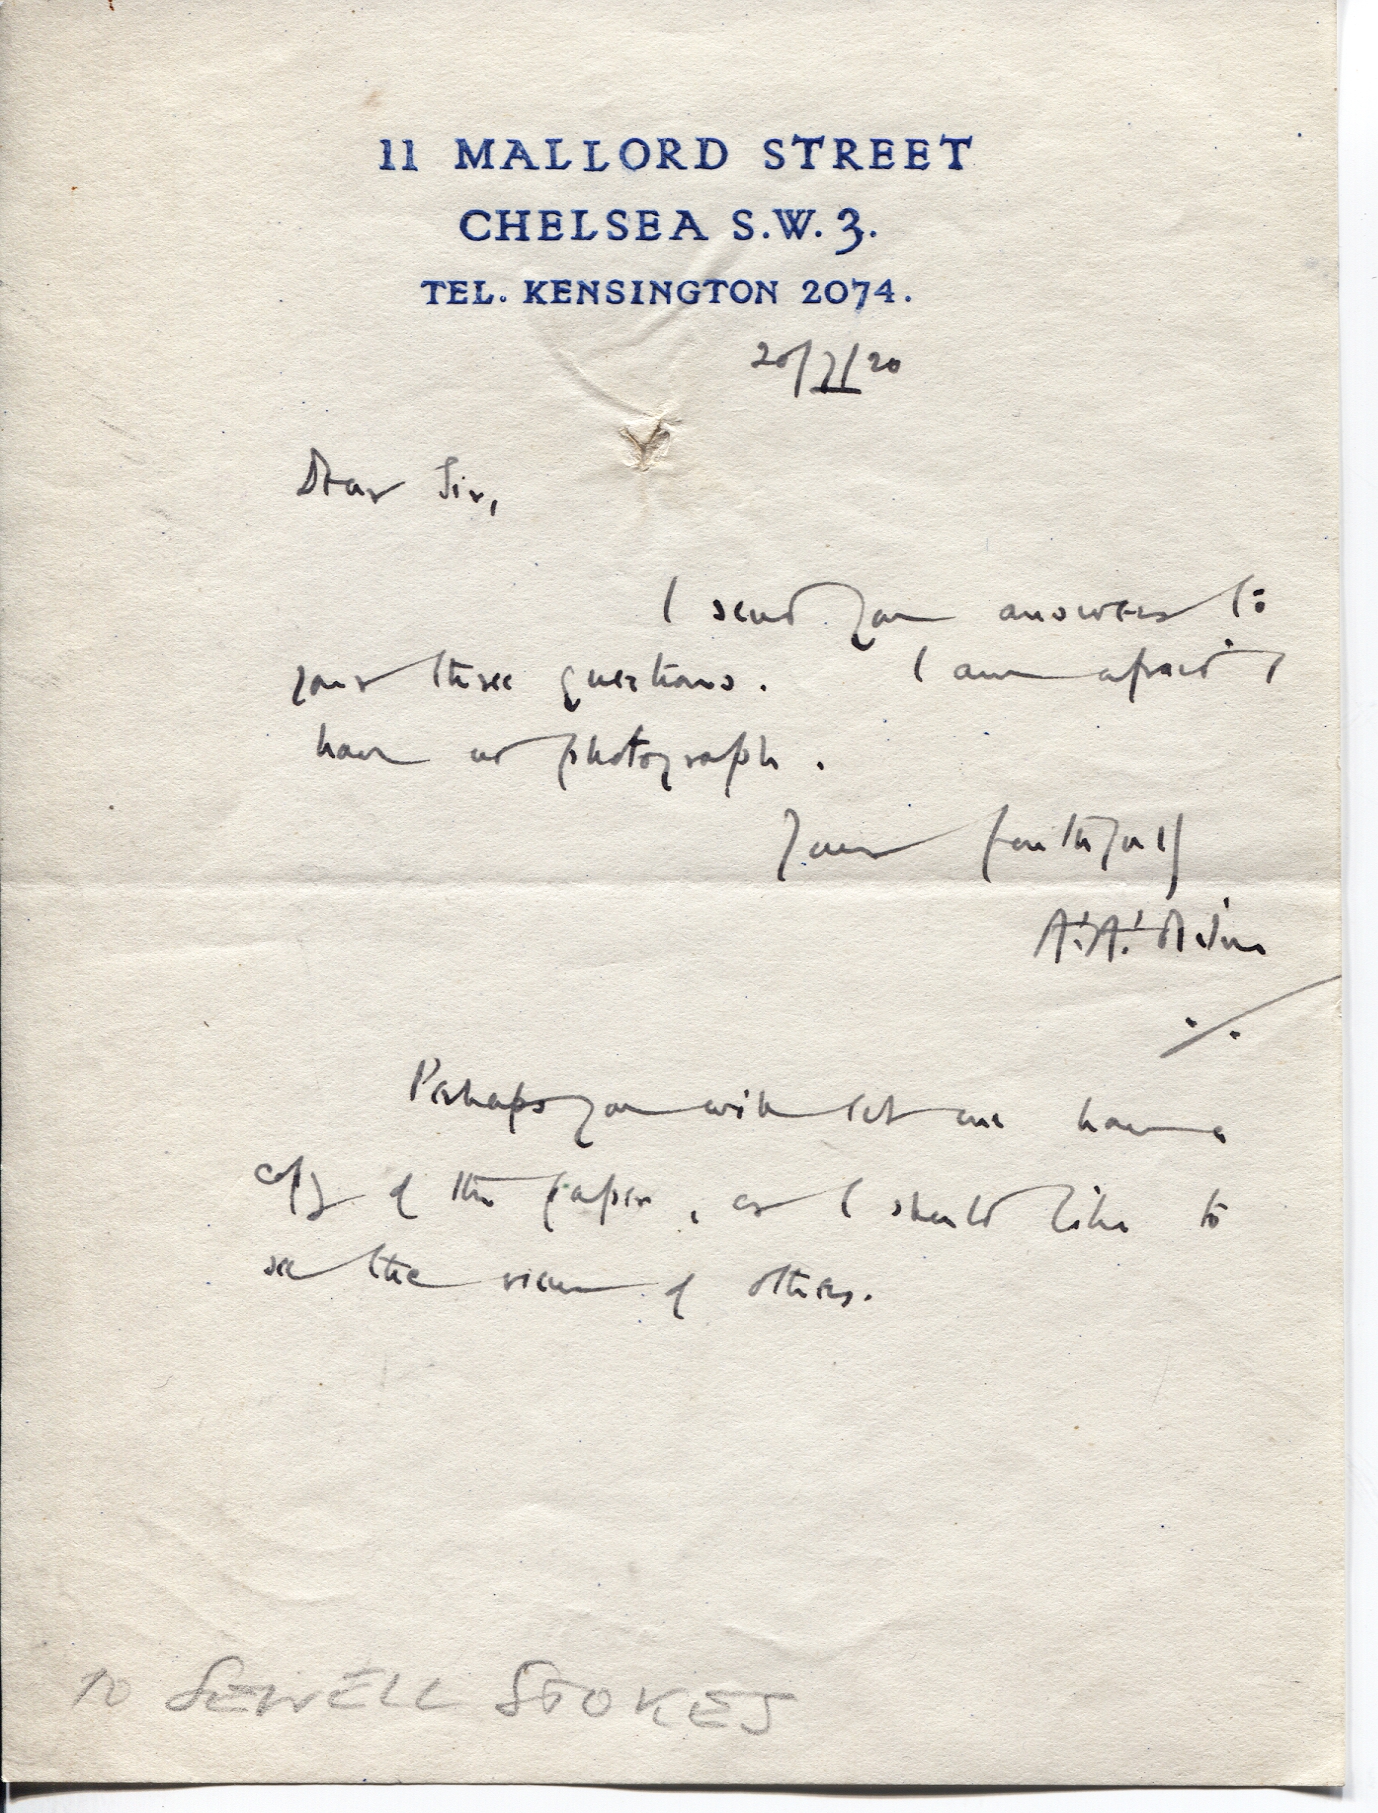 11 MALLORD STREET
CHELSEA S.W.3.
TEL. KENSINGTON 2074.
20/7/20
Dear Sir,
I send you answers to
your three questions. I am afraid I
have no photograph.
Yours faithfully
A.A. Milne
Perhaps you will let me have a
copy of the paper, as I should like to
see the views of others.
TO SEWELL STOKES